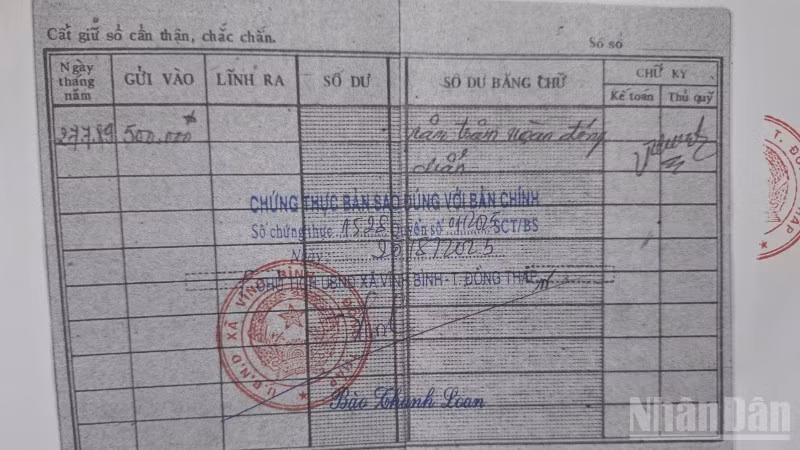 Cất giữ sổ cẩn thận, chắc chắn.
Số sổ
Ngày tháng năm
GỬI VÀO
LĨNH RA
SỐ DƯ
SỐ DƯ BẰNG CHỮ
CHỮ KÝ
Kế toán
Thủ quỹ
27.7.89
500.000đ
năm trăm ngàn đồng
chẵn
CHỨNG THỰC BẢN SAO ĐÚNG VỚI BẢN CHÍNH
Số chứng thực 1528 quyển số 01/2025 SCT/BS
Ngày
CHỦ TỊCH UBND XÃ VĨNH BÌNH - T. ĐỒNG THÁP
U.B.N.D XÃ VĨNH BÌNH
Bào Thanh Loan
NhânDân